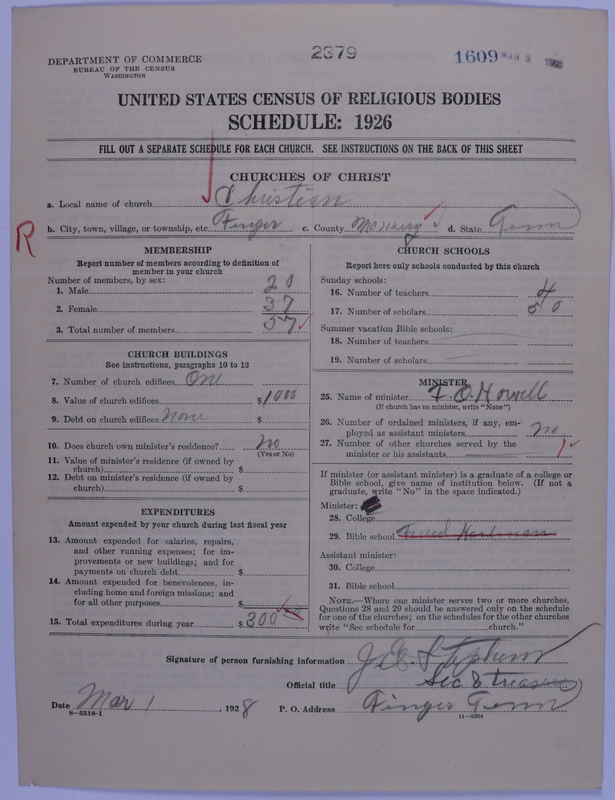 2379
1609 MAR 3
DEPARTMENT OF COMMERCE
BUREAU OF THE CENSUS
WASHINGTON
UNITED STATES CENSUS OF RELIGIOUS BODIES
SCHEDULE: 1926
FILL OUT A SEPARATE SCHEDULE FOR EACH CHURCH. SEE INSTRUCTIONS ON THE BACK OF THIS SHEET
CHURCHES OF CHRIST
a. Local name of church Christian
b. City, town, village, or township, etc. Finger c. County McNairy d. State Tenn
R
MEMBERSHIP
Report number of members according to definition of
member in your church
Number of members, by sex:
1. Male 20
2. Female 37
3. Total number of members 57
CHURCH BUILDINGS
See instructions, paragraphs 10 to 12
7. Number of church edifices One
8. Value of church edifices $1000
9. Debt on church edifices None $
10. Does church own minister's residence? no
(Yes or No)
11. Value of minister's residence (if owned by
church) $
12. Debt on minister's residence (if owned by
church) $
EXPENDITURES
Amount expended by your church during last fiscal year
13. Amount expended for salaries, repairs,
and other running expenses; for im-
provements or new buildings; and for
payments on church debt $
14. Amount expended for benevolences, in-
cluding home and foreign missions; and
for all other purposes $
15. Total expenditures during year $300
CHURCH SCHOOLS
Report here only schools conducted by this church
Sunday schools:
16. Number of teachers 4
17. Number of scholars 50
Summer vacation Bible schools:
18. Number of teachers
19. Number of scholars
MINISTER
25. Name of minister F. O. Howell
(If church has no minister, write "None")
26. Number of ordained ministers, if any, em-
ployed as assistant ministers no
27. Number of other churches served by the
minister or his assistants 1
If minister (or assistant minister) is a graduate of a college or
Bible school, give name of institution below. (If not a
graduate, write "No" in the space indicated.)
Minister:
28. College
29. Bible school Freed Hardman
Assistant minister:
30. College
31. Bible school
NOTE.—Where one minister serves two or more churches,
Questions 28 and 29 should be answered only on the schedule
for one of the churches; on the schedules for the other churches
write "See schedule for church."
Signature of person furnishing information J. E. Stephens
Official title Sec & treasure
Date Mar 1, 1928 P. O. Address Finger Tenn
8—5518-1 11—9204